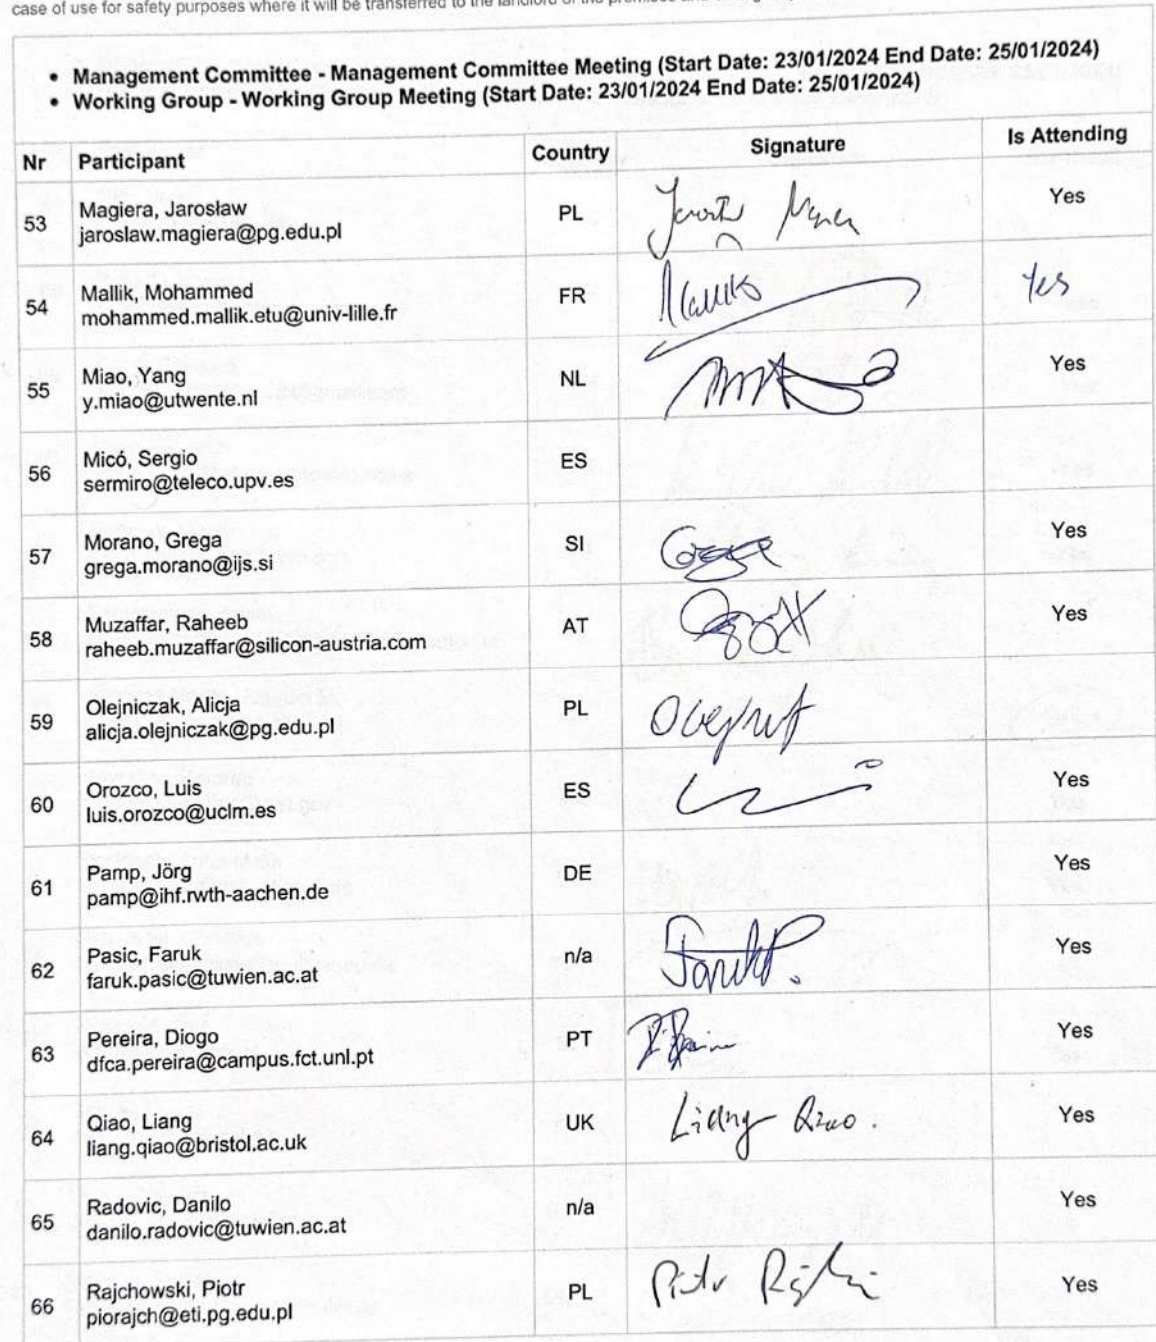 case of use for safety purposes where it will be transferred to the landlord of the premises and
• Management Committee - Management Committee Meeting (Start Date: 23/01/2024 End Date: 25/01/2024)
• Working Group - Working Group Meeting (Start Date: 23/01/2024 End Date: 25/01/2024)
Nr Participant Country Signature Is Attending
53 Magiera, Jarosław PL Yes
jaroslaw.magiera@pg.edu.pl
54 Mallik, Mohammed FR Yes
mohammed.mallik.etu@univ-lille.fr
55 Miao, Yang NL Yes
y.miao@utwente.nl
56 Micó, Sergio ES
sermiro@teleco.upv.es
57 Morano, Grega SI Yes
grega.morano@ijs.si
58 Muzaffar, Raheeb AT Yes
raheeb.muzaffar@silicon-austria.com
59 Olejniczak, Alicja PL
alicja.olejniczak@pg.edu.pl
60 Orozco, Luis ES Yes
luis.orozco@uclm.es
61 Pamp, Jörg DE Yes
pamp@ihf.rwth-aachen.de
62 Pasic, Faruk n/a Yes
faruk.pasic@tuwien.ac.at
63 Pereira, Diogo PT Yes
dfca.pereira@campus.fct.unl.pt
64 Qiao, Liang UK Liang Qiao. Yes
liang.qiao@bristol.ac.uk
65 Radovic, Danilo n/a Yes
danilo.radovic@tuwien.ac.at
66 Rajchowski, Piotr PL Piotr Yes
piorajch@eti.pg.edu.pl